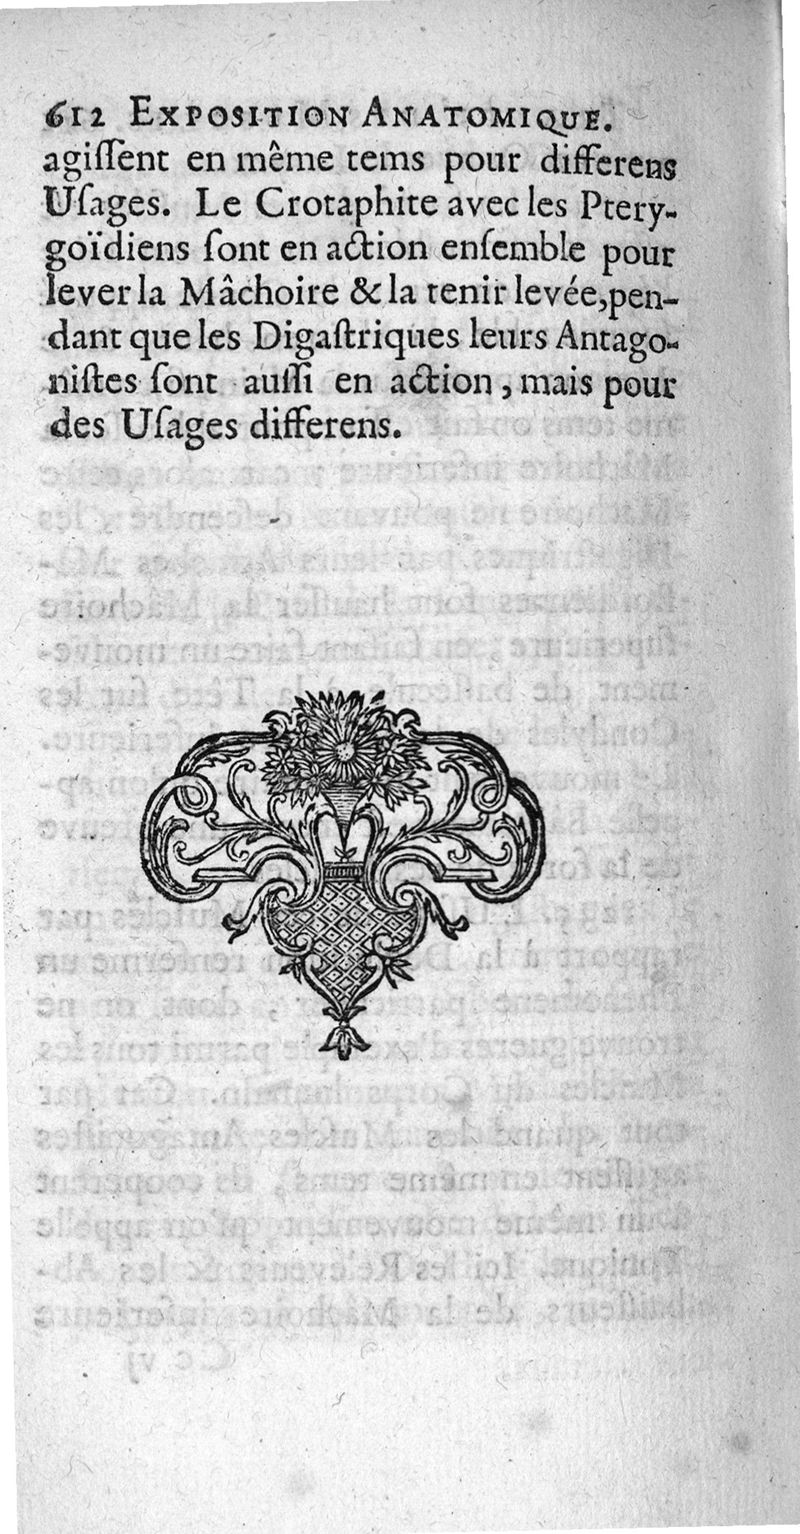 612 EXPOSITION ANATOMIQUE.
agiſſent en même tems pour differens
Uſages. Le Crotaphite avec les Ptery-
goïdiens ſont en action enſemble pour
lever la Mâchoire & la tenir levée, pen-
dant que les Digaſtriques leurs Antago-
niſtes ſont auſſi en action, mais pour
des Uſages differens.